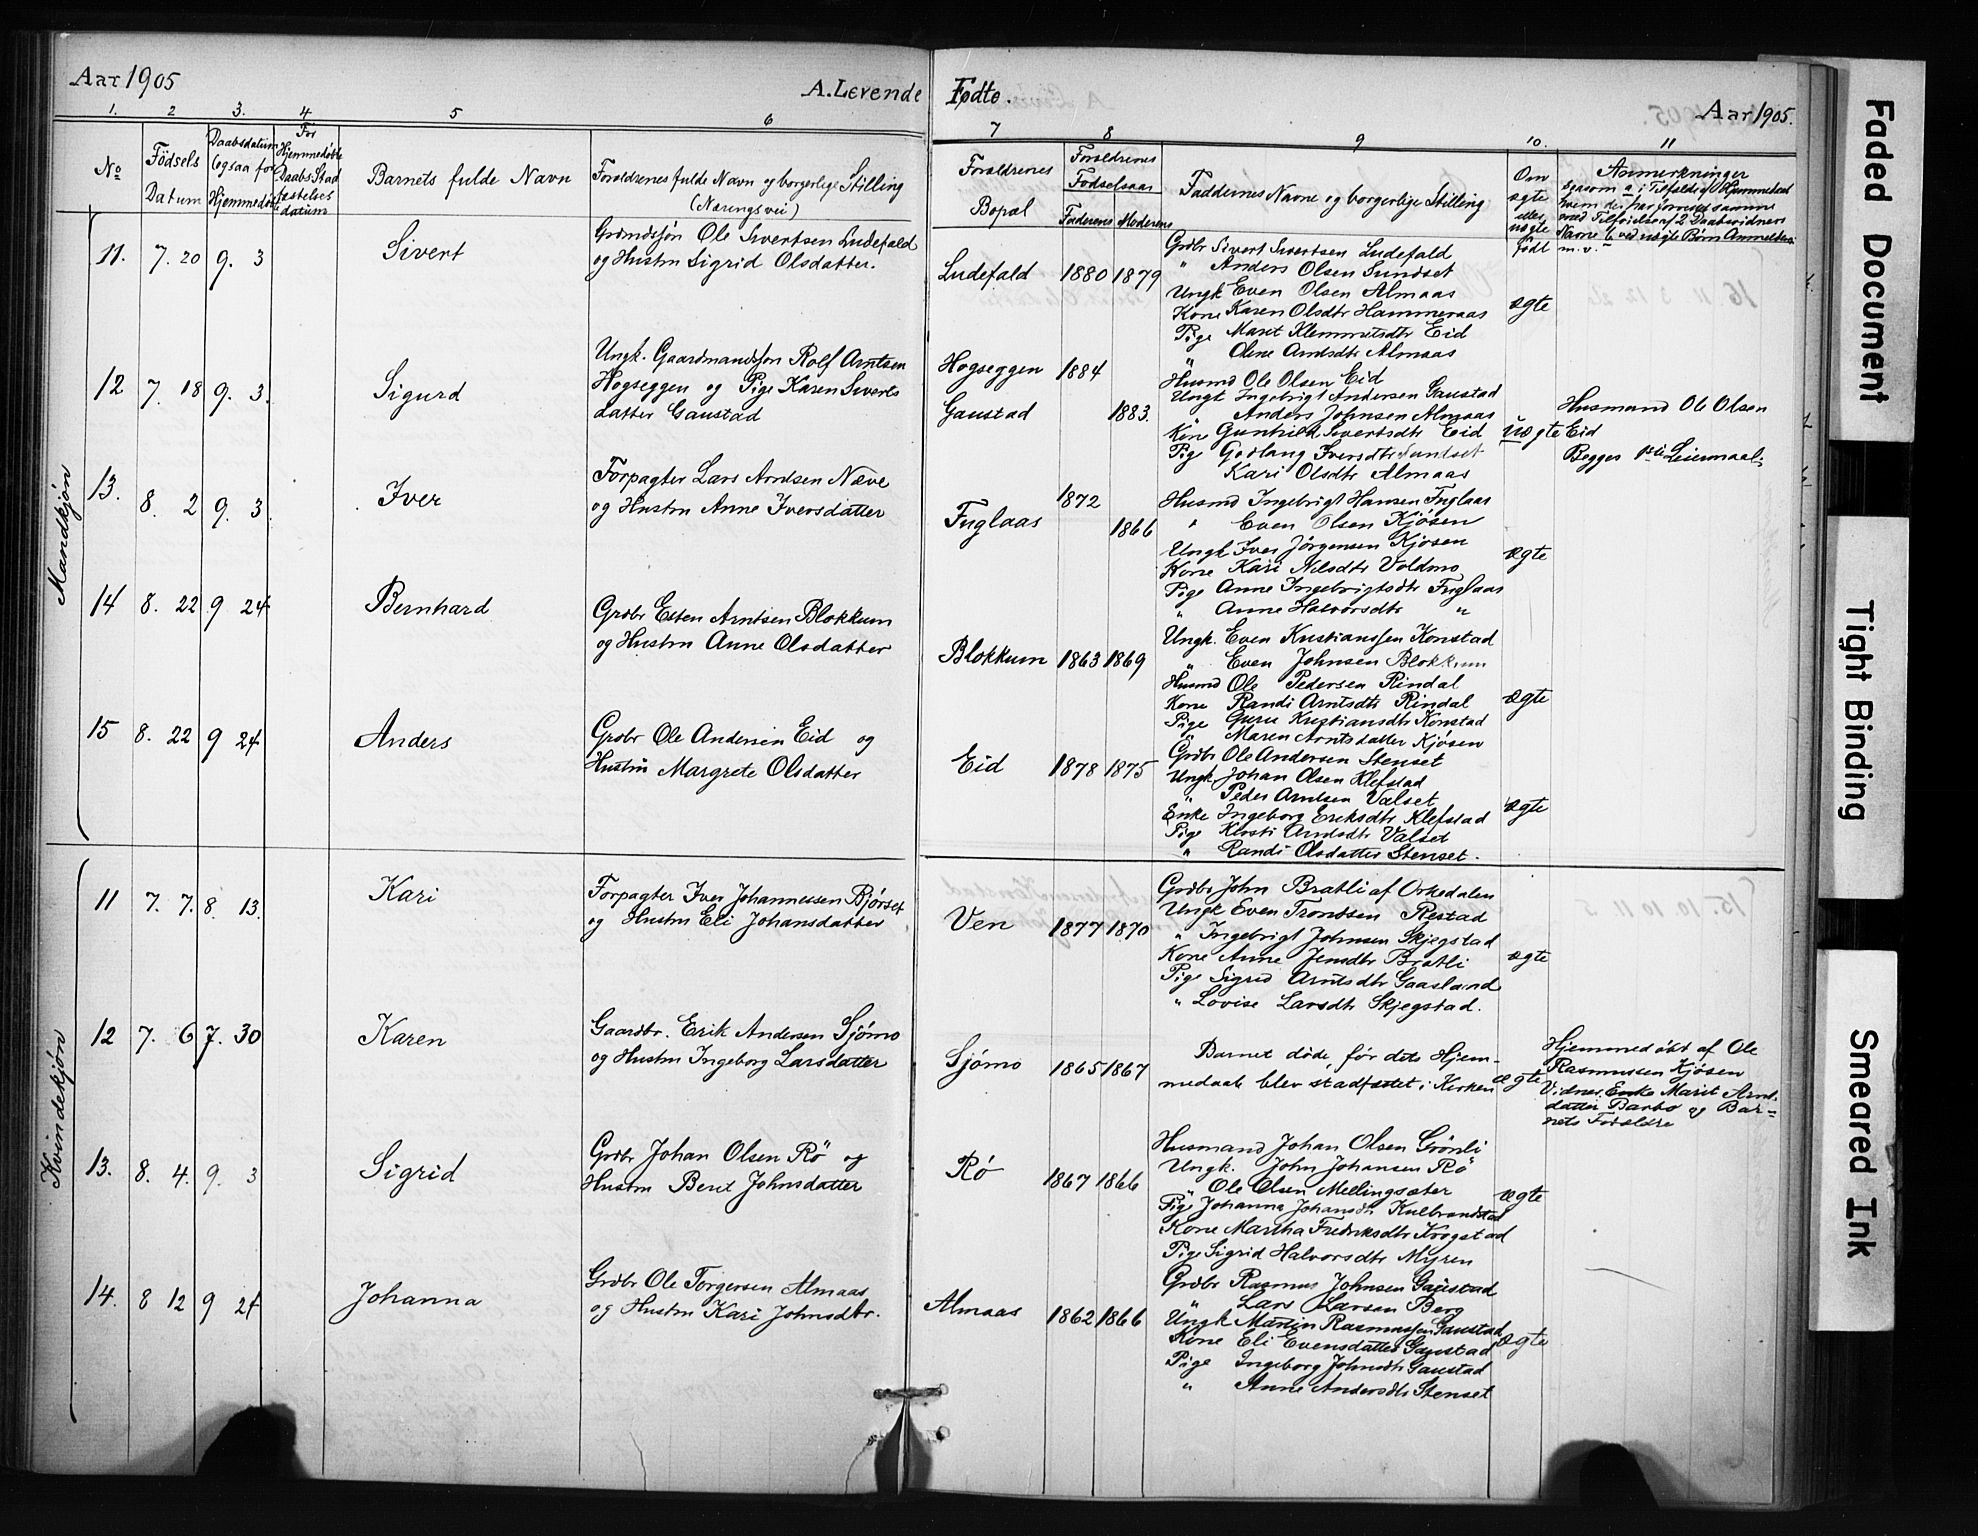 Aar 1905
A. Levende
1. 2 3. 4 5 6
No
Födsels Datum
Daabsdatum (ogsaa for Hjemmedøbte
For Hjemmedøbte Daabs Stadfæstelses datum
Barnets fulde Navn
Forældrenes fulde Navn og borgerlige Stilling
(Næringsvei)
Mandkjøn
11. 7. 20 9. 3 Sivert
Grdmdssøn Ole Sivertsen Ludefald
og Hustru Sigrid Olsdatter.
12 7. 18 9. 3. Sigurd
Ungk. Gaardmandssøn Rolf Arntsen
Hogseggen og Pige Karen Siverts
datter Gaustad
13. 8. 2 9. 3 Iver
Forpagter Lars Arntsen Næve
og Hustru Anne Iversdatter
14 8. 22 9 24 Bernhard
Grdbr Esten Arntsen Blokkum
og Hustru Anne Olsdatter
15 8. 22 9 24 Anders
Grdbr Ole Andersen Eid og
Hustru Margrete Olsdatter
Kvindekjøn
11 7. 7. 8. 13. Kari
Forpagter Iver Johannessen Bjørset
og Hustru Eli Johansdatter
12 7. 6 7. 30 Karen
Gaardbr. Erik Andersen Sjömo
og Hustru Ingeborg Larsdatter
13. 8. 4. 9. 3 Sigrid
Grdbr Johan Olsen Rö og
Hustru Berit Johnsdatter
14. 8 12 9 24 Johanna
Grdbr Ole Torgersen Almaas
og Hustru Kari Johnsdtr.
Fødte.
Aar 1905.
7 8 9 10. 11
Forældrenes Bopæl
Forældrenes Fødselsaar
Faderens Moderens
Faddernes Navne og borgerlige Stilling
Om ægte eller uægte født
Anmerkninger
saasom a, i Tilfælde af Hjemmedaab
hvem der har forrettet samme
med Tilføielse af 2 Daabsvidners
Navne b, ved uægte Børn Anmelder
m. v.
Ludefald 1880 1879 ægte
Grdbr Sivert Sivertsen Ludefald
" Anders Olsen Sundset
Ungk Even Olsen Almaas
Kone Karen Olsdtr Hammeraas
Pige Marit Klemmetsdtr Eid
" Oline Arntsdtr Almaas
Hogseggen 1884
Gaustad 1883. Uægte
Husmd Ole Olsen Eid
Ungk Ingebrigt Andersen Gaustad
Anders Johnsen Almaas
Kone Gunhild Sivertsdtr Eid
Pig Gjertang Iversdtr Sundset
Kari Olsdtr Almaas
Husmand Ole Olsen
Eid
Begges 1ste Leiermaal.
Fuglaas 1872 1866 ægte
Husmd Ingebrigt Hansen Fuglaas
" Even Olsen Kjösen
Ungk Iver Jörgensen Kjösen
Kone Kari Nilsdtr Voldmo
Pige Anne Ingebrigtsdtr Fuglaas
" Anne Halvorsdtr "
Blokkum 1863 1869 ægte
Ungk. Even Kristianssen Konstad
" Even Johnsen Blokkum
Husmd Ole Pedersen Rindal
Kone Randi Arntsdtr Rindal
Pige Guru Kristiansdtr Konstad
" Maren Arntsdatter Kjösen
Eid 1878 1875 ægte
Grdbr Ole Andersen Stenset
Ungk Johan Olsen Klefstad
" Peder Arntsen Valset
Enke Ingeborg Eriksdtr Klefstad
Pige Kirsti Arntsdtr Valset
" Randi Olsdatter Stenset.
Ven 1877 1870 ægte
Grdbr John Bratli af Orkedalen
Ungk Even Trondsen Restad
" Ingebrigt Johnsen Skjegstad
Kone Anne Jensdtr Bratli
Pige Sigrid Arntsdtr Gaasland
" Lovise Larsdtr Skjegstad.
Sjömo 1865 1867 ægte
Barnet døde, før dets Hjem-
medaab blev stadfæstet i Kirken
Hjemmedøbt af Ole
Rasmussen Kjösen
Vidner. Enke Marit Arnt-
datter Barbo og Bar-
nets Forældre
Rö 1867 1866 ægte
Husmand Johan Olsen Grönli
Ungk. John Johansen Rö
" Ole Olsen Mellingsæter
Pige Johanna Johansdtr Kulbrandstad
Kone Martha Fredriksdtr Krogstad
Pige Sigrid Halvorsdtr Myren
Almaas 1862 1866 ægte
Grdbr Rasmus Johnsen Gaustad
" Lars Larsen Berg
Ungk Martin Rasmussen Gaustad
Kone Eli Evensdatter Gaustad
Pige Ingeborg Johnsdtr Gaustad
" Anne Andersdtr Stenset
Faded Document
Tight Binding
Smeared Ink